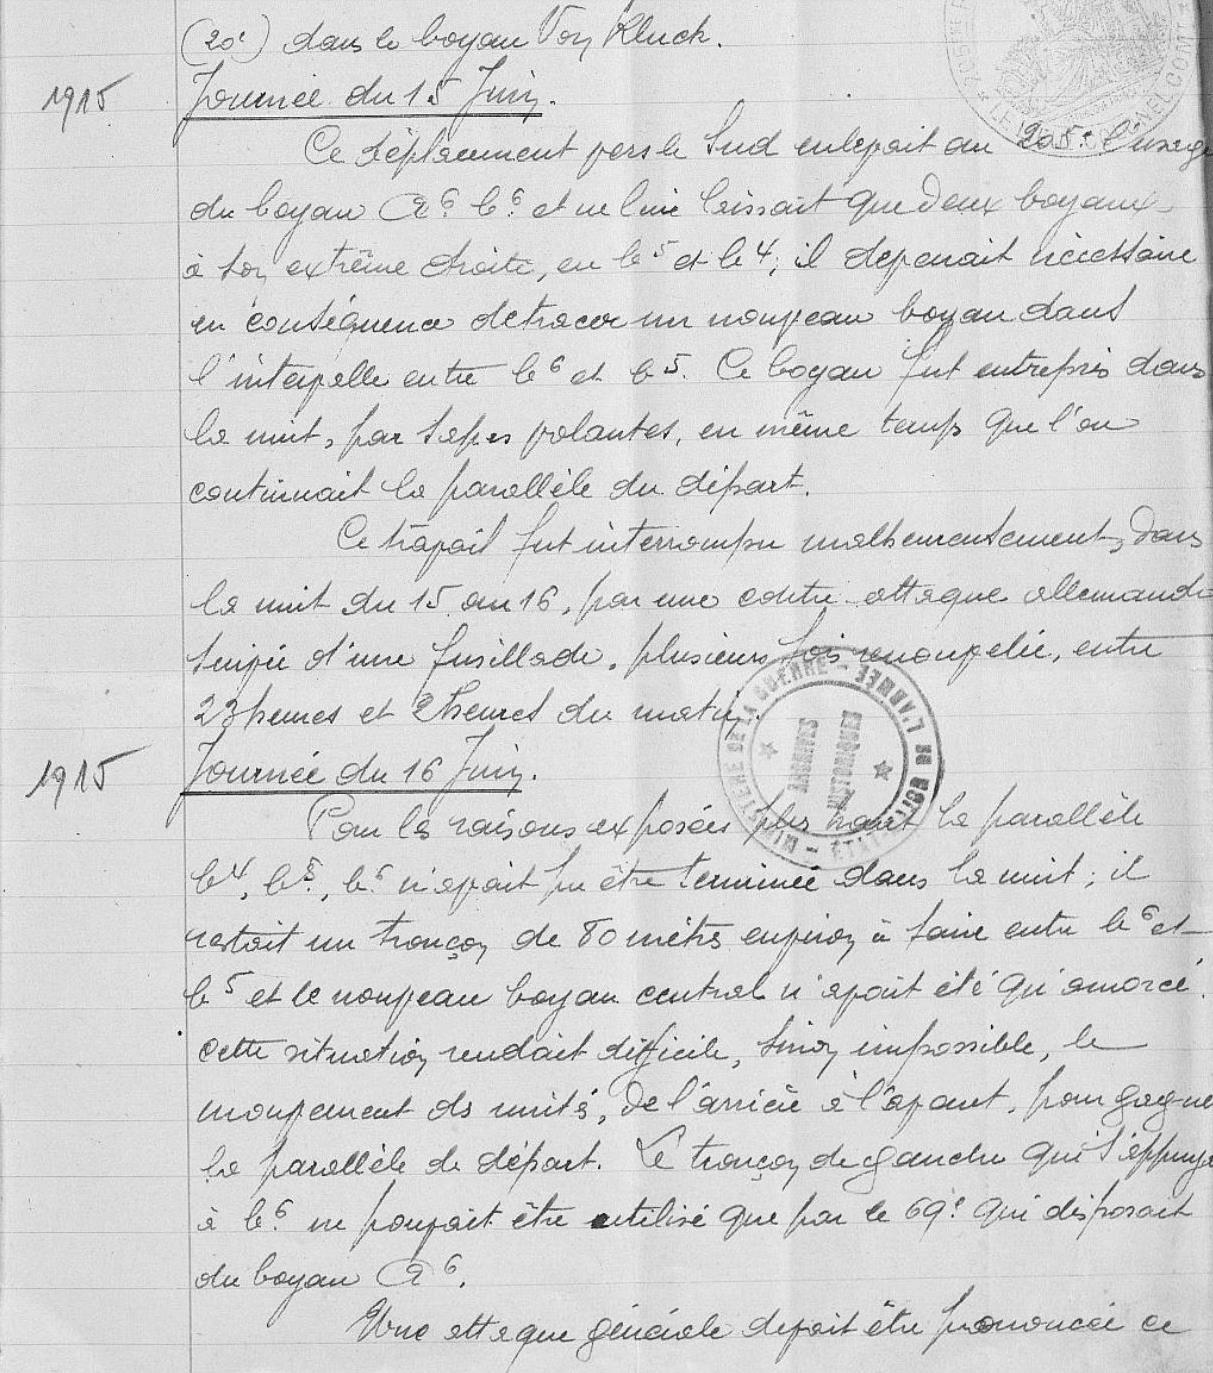 (20e) dans le boyau Von Kluck.
1915
Journée du 15 Juin.
Ce déplacement vers le Sud enlevait au 205e l'usage
du boyau a6 b6 et ne lui laissait que deux boyaux
à son extrême droite, en b5 et b4; il devenait nécessaire
en conséquence de tracer un nouveau boyau dans
l'intervalle entre b6 et b5. Ce boyau fut entrepris dans
la nuit, par sapes volantes, en même temps que l'on
continuait la parallèle du départ.
Ce travail fut interrompu malheureusement, dans
la nuit du 15 au 16, par une contre-attaque allemande
suivie d'une fusillade, plusieurs fois renouvelée, entre
23 heures et 2 heures du matin.
1915
Journée du 16 Juin.
Pour les raisons exposées plus haut la parallèle
b4, b5, b6 n'avait pu être terminée dans la nuit; il
restait un tronçon de 80 mètres environ à faire entre b6 et
b5 et le nouveau boyau central n'avait été qu'amorcé.
Cette situation rendait difficile, sinon impossible, le
mouvement des unités, de l'arrière à l'avant, pour gagne
la parallèle de départ. Le tronçon de gauche qui s'appuya
à b6 ne pouvait être utilisé que par le 69e qui disposait
du boyau a6.
Une attaque générale devait être prononcée ce
MINISTÈRE DE LA GUERRE - ÉTAT-MAJOR DE L'ARMÉE
ARCHIVES
HISTORIQUES